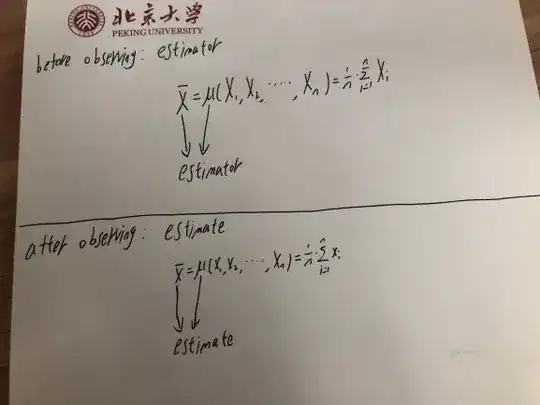 北京大学
PEKING UNIVERSITY
before observing: estimator
X̄ = μ(X₁, X₂, ‥‥, Xₙ) = 1/n · ∑ᵢ₌₁ⁿ Xᵢ
estimator
after observing: estimate
x̄ = μ(x₁, x₂, ‥‥, xₙ) = 1/n · ∑ᵢ₌₁ⁿ xᵢ
estimate